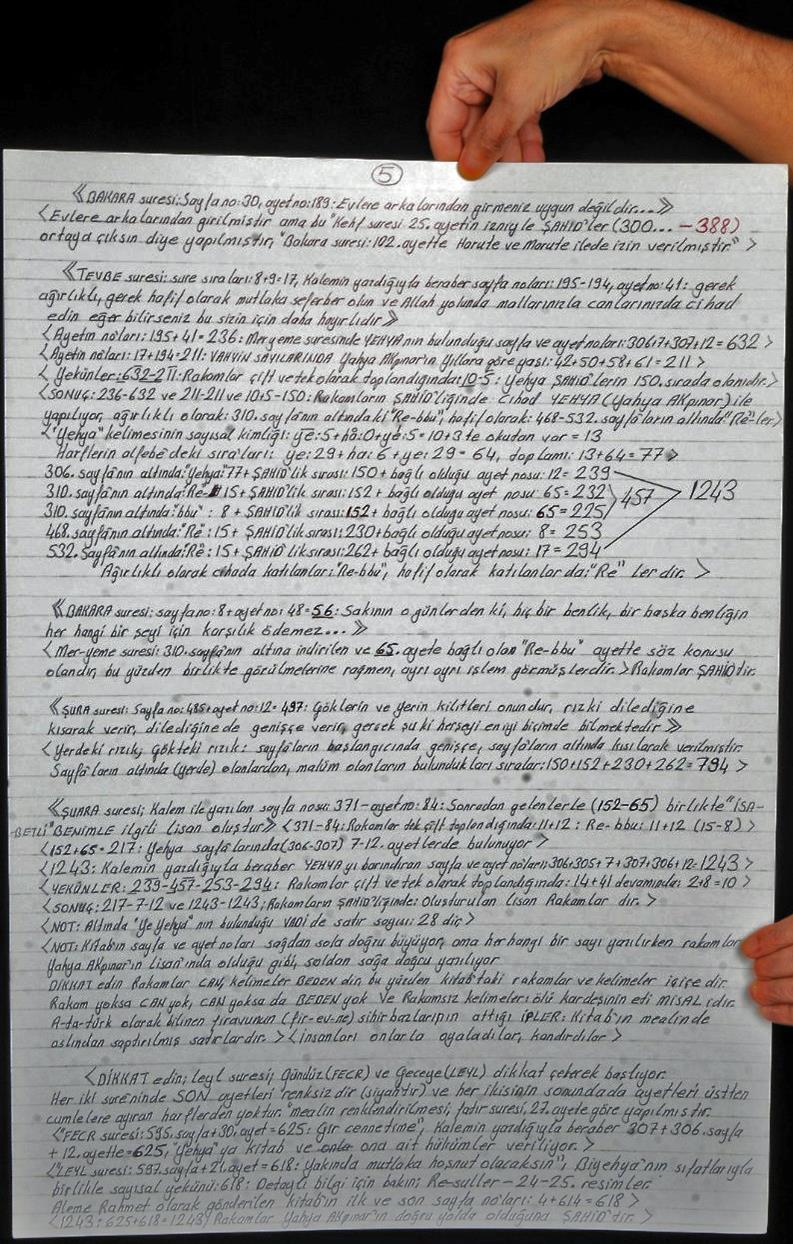 5
《BAKARA suresi: Sayfa no: 30, ayet no: 189: Evlere arkalarından girmeniz uygun değildir...》
<Evlere arkalarından girilmiştir ama bu "Kehf suresi 25. ayetin izniyle ŞAHİD'ler (300... -388)
ortaya çıksın diye yapılmıştır, "Bakara suresi: 102. ayette Harute ve Marute ilede izin verilmiştir" >
《TEVBE suresi: sure sıraları: 8+9=17, Kalemin yazdığıyla beraber sayfa noları: 195-194, ayet no: 41: gerek
ağırlıklı, gerek hafif olarak mutlaka seferber olun ve Allah yolunda mallarınızla canlarınızda cihad
edin eğer bilirseniz bu sizin için daha hayırlıdır》
<Ayetin no'ları: 195+41=236: Meryeme suresinde YEHYA'nın bulunduğu sayfa ve ayet noları: 306+7+307+12=632 >
<Ayetin no'ları: 17+194=211: YAHYİN SAYILARINDA Yahya Akpınar'ın yıllara göre yaşı: 42+50+58+61=211 >
<Yekünler: 632-211: Rakamlar çift ve tek olarak toplandığında: 10-5: Yehya ŞAHİD'lerin 150. sırada olanıdır.>
<SONUÇ: 236-632 ve 211-211 ve 10+5-150: Rakamların ŞAHİD'liğinde Cihad YEHYA (Yahya AKpınar) ile
yapılıyor, ağırlıklı olarak: 310. sayfa'nın altındaki "Re-bbu", hafif olarak: 468-532. sayfa'ların altında "Rê"ler>
<"Yehya" kelimesinin sayısal kimliği: ye: 5+ha: 0+ye: 5=10+3 te okutan var = 13
Harflerin alfebe'deki sıra'ları: ye: 29+ha: 6+ye: 29=64, toplamı: 13+64=77>
306. sayfa'nın altında: "Yehya": 77+ŞAHİD'lik sırası: 150+bağlı olduğu ayet nosu: 12=239
310. sayfa'nın altında: "Re-": 15+ŞAHİD'lik sırası: 152+bağlı olduğu ayet nosu: 65=232
310. sayfa'nın altında: "bbu": 8+ŞAHİD'lik sırası: 152+bağlı olduğu ayet nosu: 65=225 457 1243
468. sayfa'nın altında: "Rê": 15+ŞAHİD'lik sırası: 230+bağlı olduğu ayet nosu: 8=253
532. Sayfa'nın altında: "Rê": 15+ŞAHİD'lik sırası: 262+bağlı olduğu ayet nosu: 17=294
"Ağırlıklı olarak cihada katılanlar: "Re-bbu", hafif olarak katılanlar da: "Re" lerdir. >
《BAKARA suresi: sayfa no: 8+ayet no: 48=56: Sakının o günlerden ki, hiç bir benlik, bir başka benliğin
her hangi bir şeyi için karşılık ödemez...》
<Mer-yeme suresi: 310. sayfa'nın altına indirilen ve 65. ayete bağlı olan "Re-bbu" ayette söz konusu
olandır, bu yüzden birlikte görülmelerine rağmen, ayrı ayrı işlem görmüşlerdir. >Rakamlar ŞAHİD'dir.
《ŞURA suresi: Sayfa no: 485+ayet no: 12=497: Göklerin ve yerin kilitleri onundur, rızkı dilediğine
kısarak verir, dilediğine de genişçe verir, gerçek şu ki herşeyi en iyi biçimde bilmektedir》
<Yerdeki rızık, Gökteki rızık: sayfa'ların başlangıcında genişçe, sayfa'ların altında kısılarak verilmiştir.
Sayfa'ların altında (yerde) olanlardan, malûm olanların bulundukları sıralar: 150+152+230+262=794 >
《ŞUARA suresi; Kalem ile yazılan sayfa nosu: 371-ayet no: 84: Sonradan gelenlerle (152-65) birlikte "İSA-
BETLİ" BENİMLE ilgili Lisan oluştur》 <371-84: Rakamlar tek çift toplandığında: 11+12: Re-bbu: 11+12 (15-8) >
<152+65=217: Yehya sayfalarında (306-307) 7-12. ayetlerde bulunuyor >
<1243: Kalemin yazdığıyla beraber YEHYA yı barındıran sayfa ve ayet noları: 306+305+7+307+306+12=1243 >
<YEKÜNLER: 239-457-253-294: Rakamlar çift ve tek olarak toplandığında: 14+41 devamında: 2+8=10 >
<SONUÇ: 217-7-12 ve 1243-1243; Rakamların ŞAHİD'liğinde: Oluşturulan Lisan Rakamlar dır. >
<NOT: Altında "Ye Yehya" nın bulunduğu VADİ de satır sayısı: 28 diç>
<NOT: Kitab'ın sayfa ve ayet no'ları sağdan sola doğru büyüyor, ama her hangi bir sayı yazılırken rakamlar
Yahya AKpınar'ın Lisan'ında olduğu gibi, soldan sağa doğru yazılıyor
DİKKAT edin Rakamlar CAN, kelimeler BEDEN dir, bu yüzden kitab'taki rakamlar ve kelimeler içiçe dir.
Rakam yoksa CAN yok, CAN yoksa da BEDEN yok ve Rakamsız kelimeler: ölü kardeşinin eti MİSALİdir.
A-ta-türk olarak bilinen firavunun (fir-ev-ne) sihirbazlarının attığı İPLER: Kitab'ın mealinde
aslından saptırılmış satırlardır. > <İnsanları onlarla oyaladılar, kandırdılar >
<DİKKAT edin; leyl suresi, Gündüz (FECR) ve Geceye (LEYL) dikkat çekerek başlıyor.
Her iki sure'ninde SON ayetleri renksizdir (siyah'tır) ve her ikisinin sonundada ayetleri üstten
cümlelere ayıran harflerden yoktur. "mealin renklendirilmesi, fatır suresi, 27. ayete göre yapılmıştır.
<"FECR suresi: 595. sayfa+30. ayet=625: Gir cennetime", Kalemin yazdığıyla beraber 307+306. sayfa
+12. ayette=625, "Yehya" ya Kitab ve ona ait hükümler veriliyor. >
<"LEYL suresi: 597. sayfa+21. ayet=618: Yakında mutlaka hoşnut olacaksın", Biyehya'nın sıfatlarıyla
birlikte sayısal yekünü: 618: Detaylı bilgi için bakın; Re-suller-24-25. resimler.
Aleme Rahmet olarak gönderilen kitab'ın ilk ve son sayfa no'ları: 4+614=618 >
<1243: 625+618=1243; Rakamlar Yahya AKpınar'ın doğru yolda olduğuna ŞAHİD'tir. >